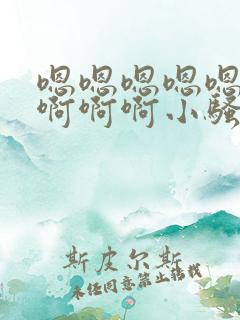 嗯嗯嗯嗯嗯
啊啊啊小骚
斯皮尔斯
未经同意禁止转载